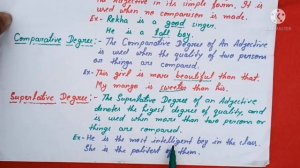 The Adjective in its simple form. It is
used when no comparison is made.
Ex- Rekha is a good singer.
He is a tall boy.
Comparative Degree:- The Comparative Degree of An Adjective
is used when the quality of two persons
or things are compared.
Ex:- This girl is more beautiful than that.
My mango is sweeter than his.
Superlative Degree:- The Superlative Degree of an Adjective
denotes the higest degree of quality, and
is used when more than two persons or
things are compared.
Ex:- He is the most intelligent boy in the class.
She is the politest of them.